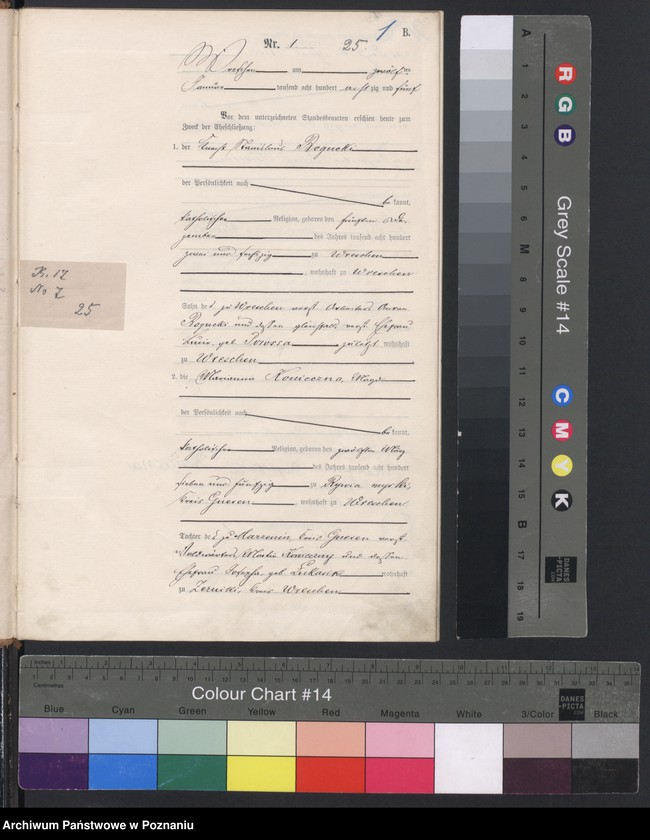 1 B.
Nr. 1 25.
Wreschen am zwölften
Januar tausend acht hundert achtzig und fünf
Vor dem unterzeichneten Standesbeamten erschien heute zum
Zweck der Eheschließung:
1. der Knecht Stanislaus Rogucki
der Persönlichkeit nach
be kannt,
katholischer Religion, geboren den fünften
des Jahres tausend acht hundert
zwei und fünfzig zu Wreschen
, wohnhaft zu Wreschen
Sohn des zu Wreschen verst. Arbeiters
Rogucki und dessen gleichfalls verst. Ehefrau
geb. zuletzt wohnhaft
zu Wreschen
2. die Marianna Konieczna, Magd
der Persönlichkeit nach
be kannt,
katholischer Religion, geboren den zwölften März
des Jahres tausend acht hundert
sieben und fünfzig zu
Kreis Gnesen, wohnhaft zu Wreschen
Tochter des zu Marzenin, Kreis Gnesen verst.
Waldwärters Martin Konieczny und dessen
Ehefrau Josepha geb. wohnhaft
zu Zerniki, Kreis Wreschen
K. 17
No 7
25
Grey Scale #14
A 1 2 3 4 5 6 M 8 9 10 11 12 13 14 15 B 17 18 19
R G B
C M Y K
DANES-PICTA.COM
Inches
Centimetres
Colour Chart #14
DANES-PICTA.COM
Blue Cyan Green Yellow Red Magenta White 3/Color Black
Archiwum Państwowe w Poznaniu